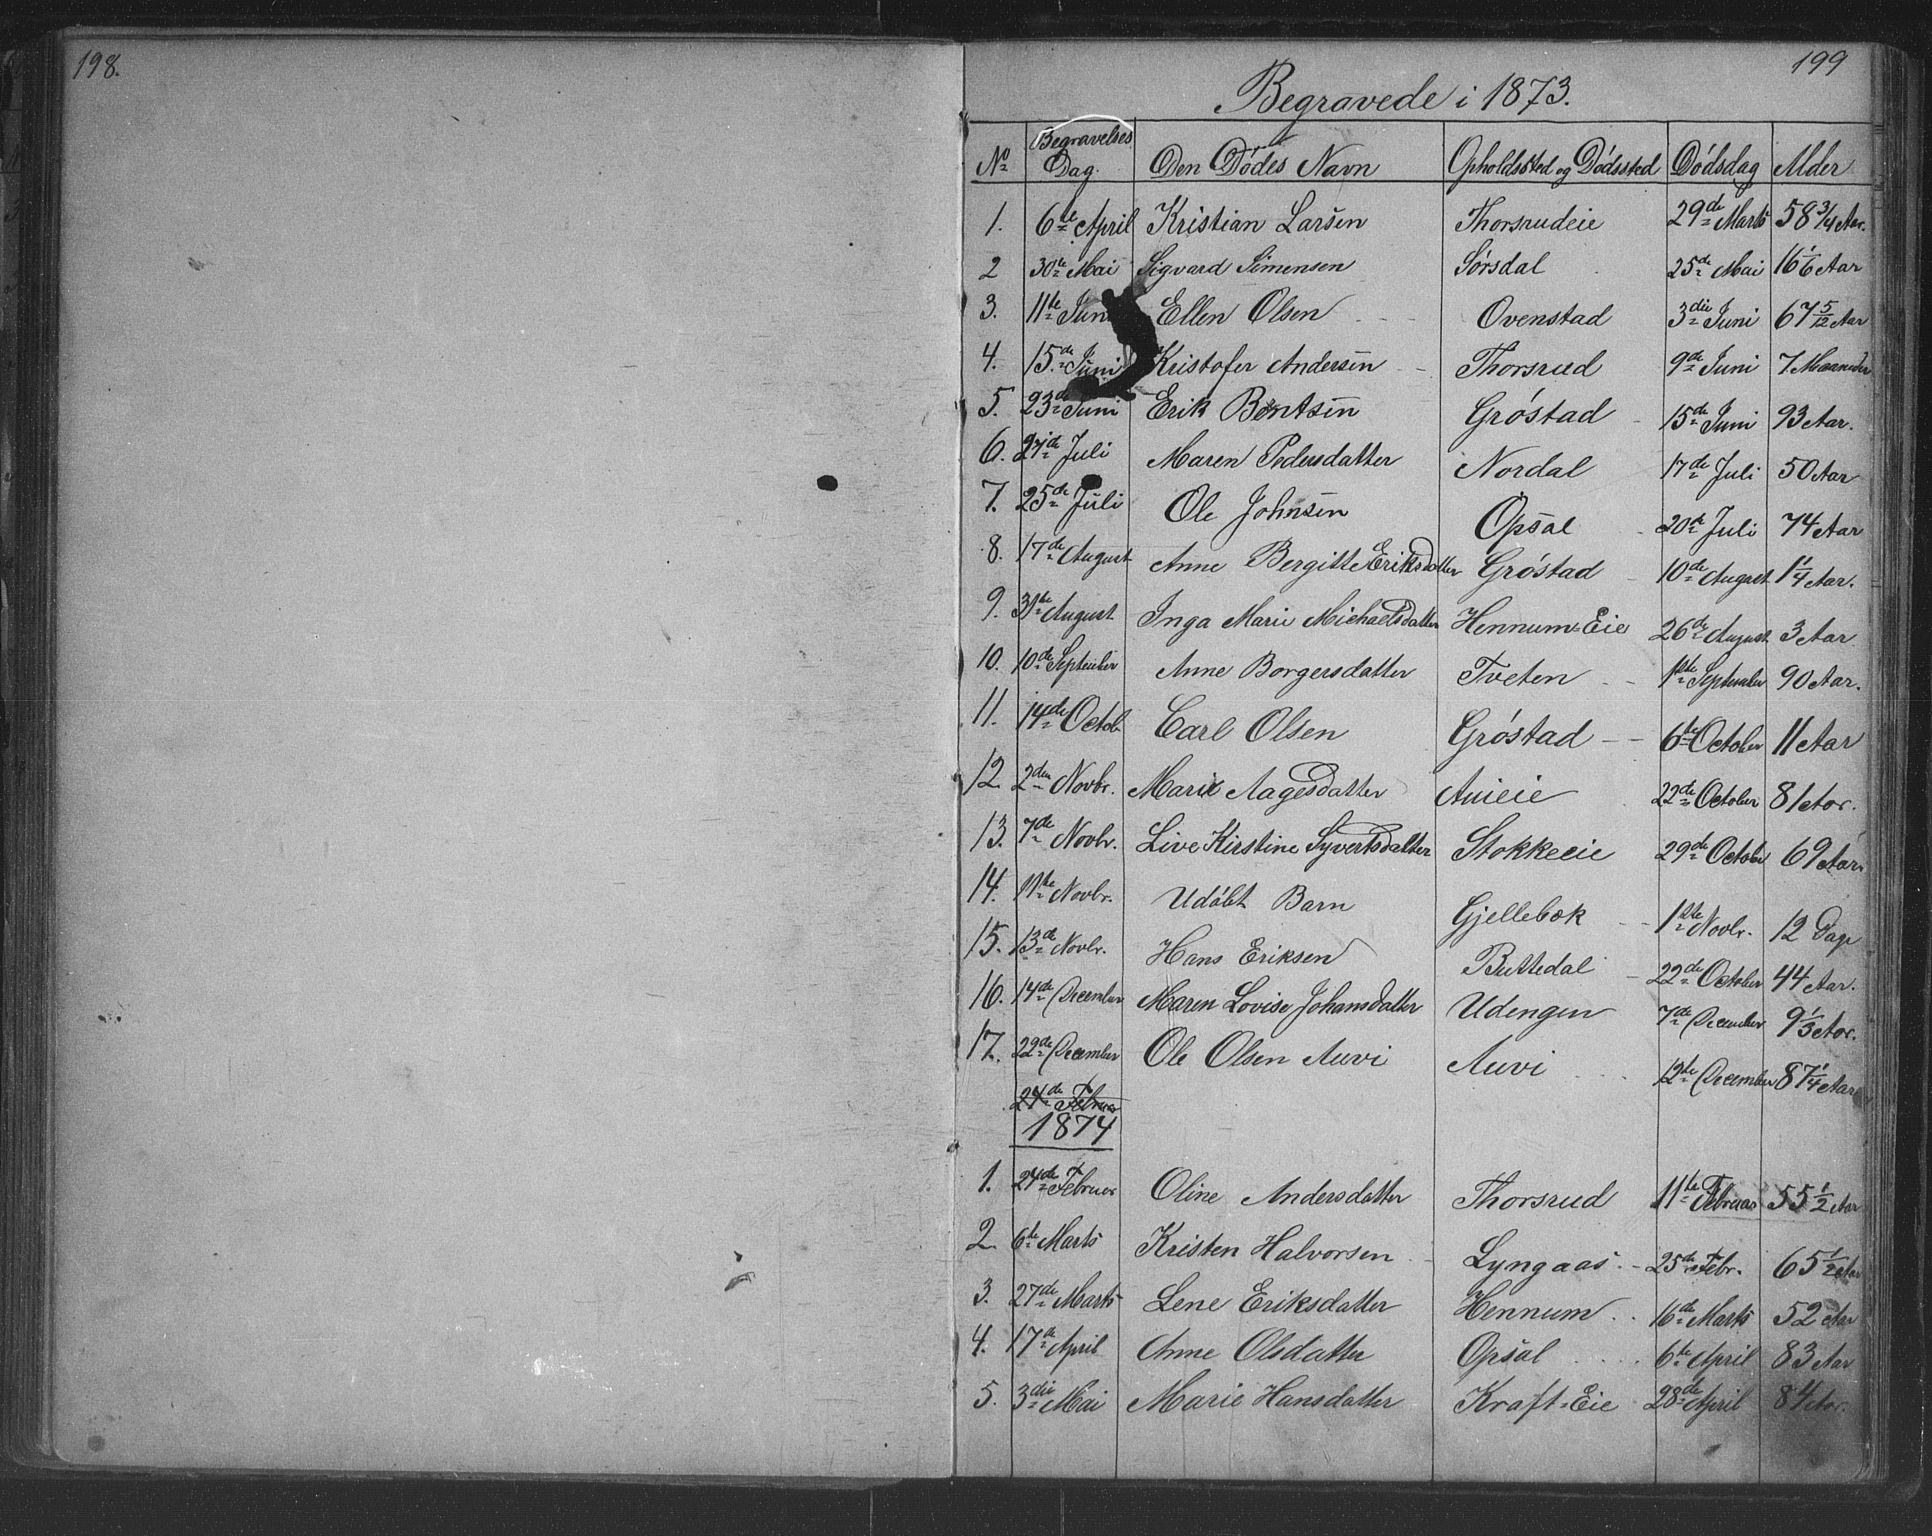 198.
199
Begravede i 1873.
No Begravelses Dag. Den Dødes Navn Opholdssted og Dødssted Dødsdag Alder
1. 6te April Kristian Larsen Thorsrudeie 29de Marts 58 3/4 Aar.
2 30te Mai Sigvard Simensen Sørsdal 25de Mai 16 1/6 Aar
3. 11te Juni Ellen Olsen Ovenstad 3die Juni 67 5/12 Aar
4. 15de Juni Kristofer Andersen Thorsrud 9de Juni 7 Maaneder
5. 23de Juni Erik Berntsen Grøstad 15de Juni 93 Aar.
6. Juli Maren Pedersdatter Nordal 17de Juli 50 Aar
7. 25de Juli Ole Johnsen Opsal 20de Juli 74 Aar
8. 17de August Anne Bergitte Eriksdatter Grøstad 10de August 1 1/4 Aar.
9. 31te August Inga Marie Michaelsdatter Hennum=Eie 26de August 3 Aar
10. 10de September Anne Borgersdatter Tveten 1ste September 90 Aar.
11. 14de Octob. Carl Olsen Grøstad 6te October 11 Aar
12. 2den Novbr. Marie Aagesdatter Auieie 22de October 81 Aar.
13. 7de Novbr. Live Kirstine Syvertsdatter Stokkeeie 29de October 69 Aar.
14. 11te Novbr. Udøbt Barn Gjellebæk 1ste Novbr. 12 Dage
15. 13de Novbr. Hans Eriksen Buttedal 22de October 44 Aar.
16. 14de December Maren Lovise Johansdatter Udengen 7de December 9 1/3 Aar.
17. 22de December Ole Olsen Auvi Auvi 12te December 87 1/4 Aar
24de Februar
1874
1. 24de Februar Oline Andersdatter Thorsrud 11te Februar 55 1/2 Aar
2. 6te Marts Kristen Halvorsen Lyngaas 25de Febr. 65 1/2 Aar
3. 27de Marts Lene Eriksdatter Hennum 16de Marts 52 Aar
4. 17de April Anne Olsdatter Opsal 6te April 83 Aar
5. 3die Mai Marie Hansdatter Kraft=Eie 28de April 84 Aar.